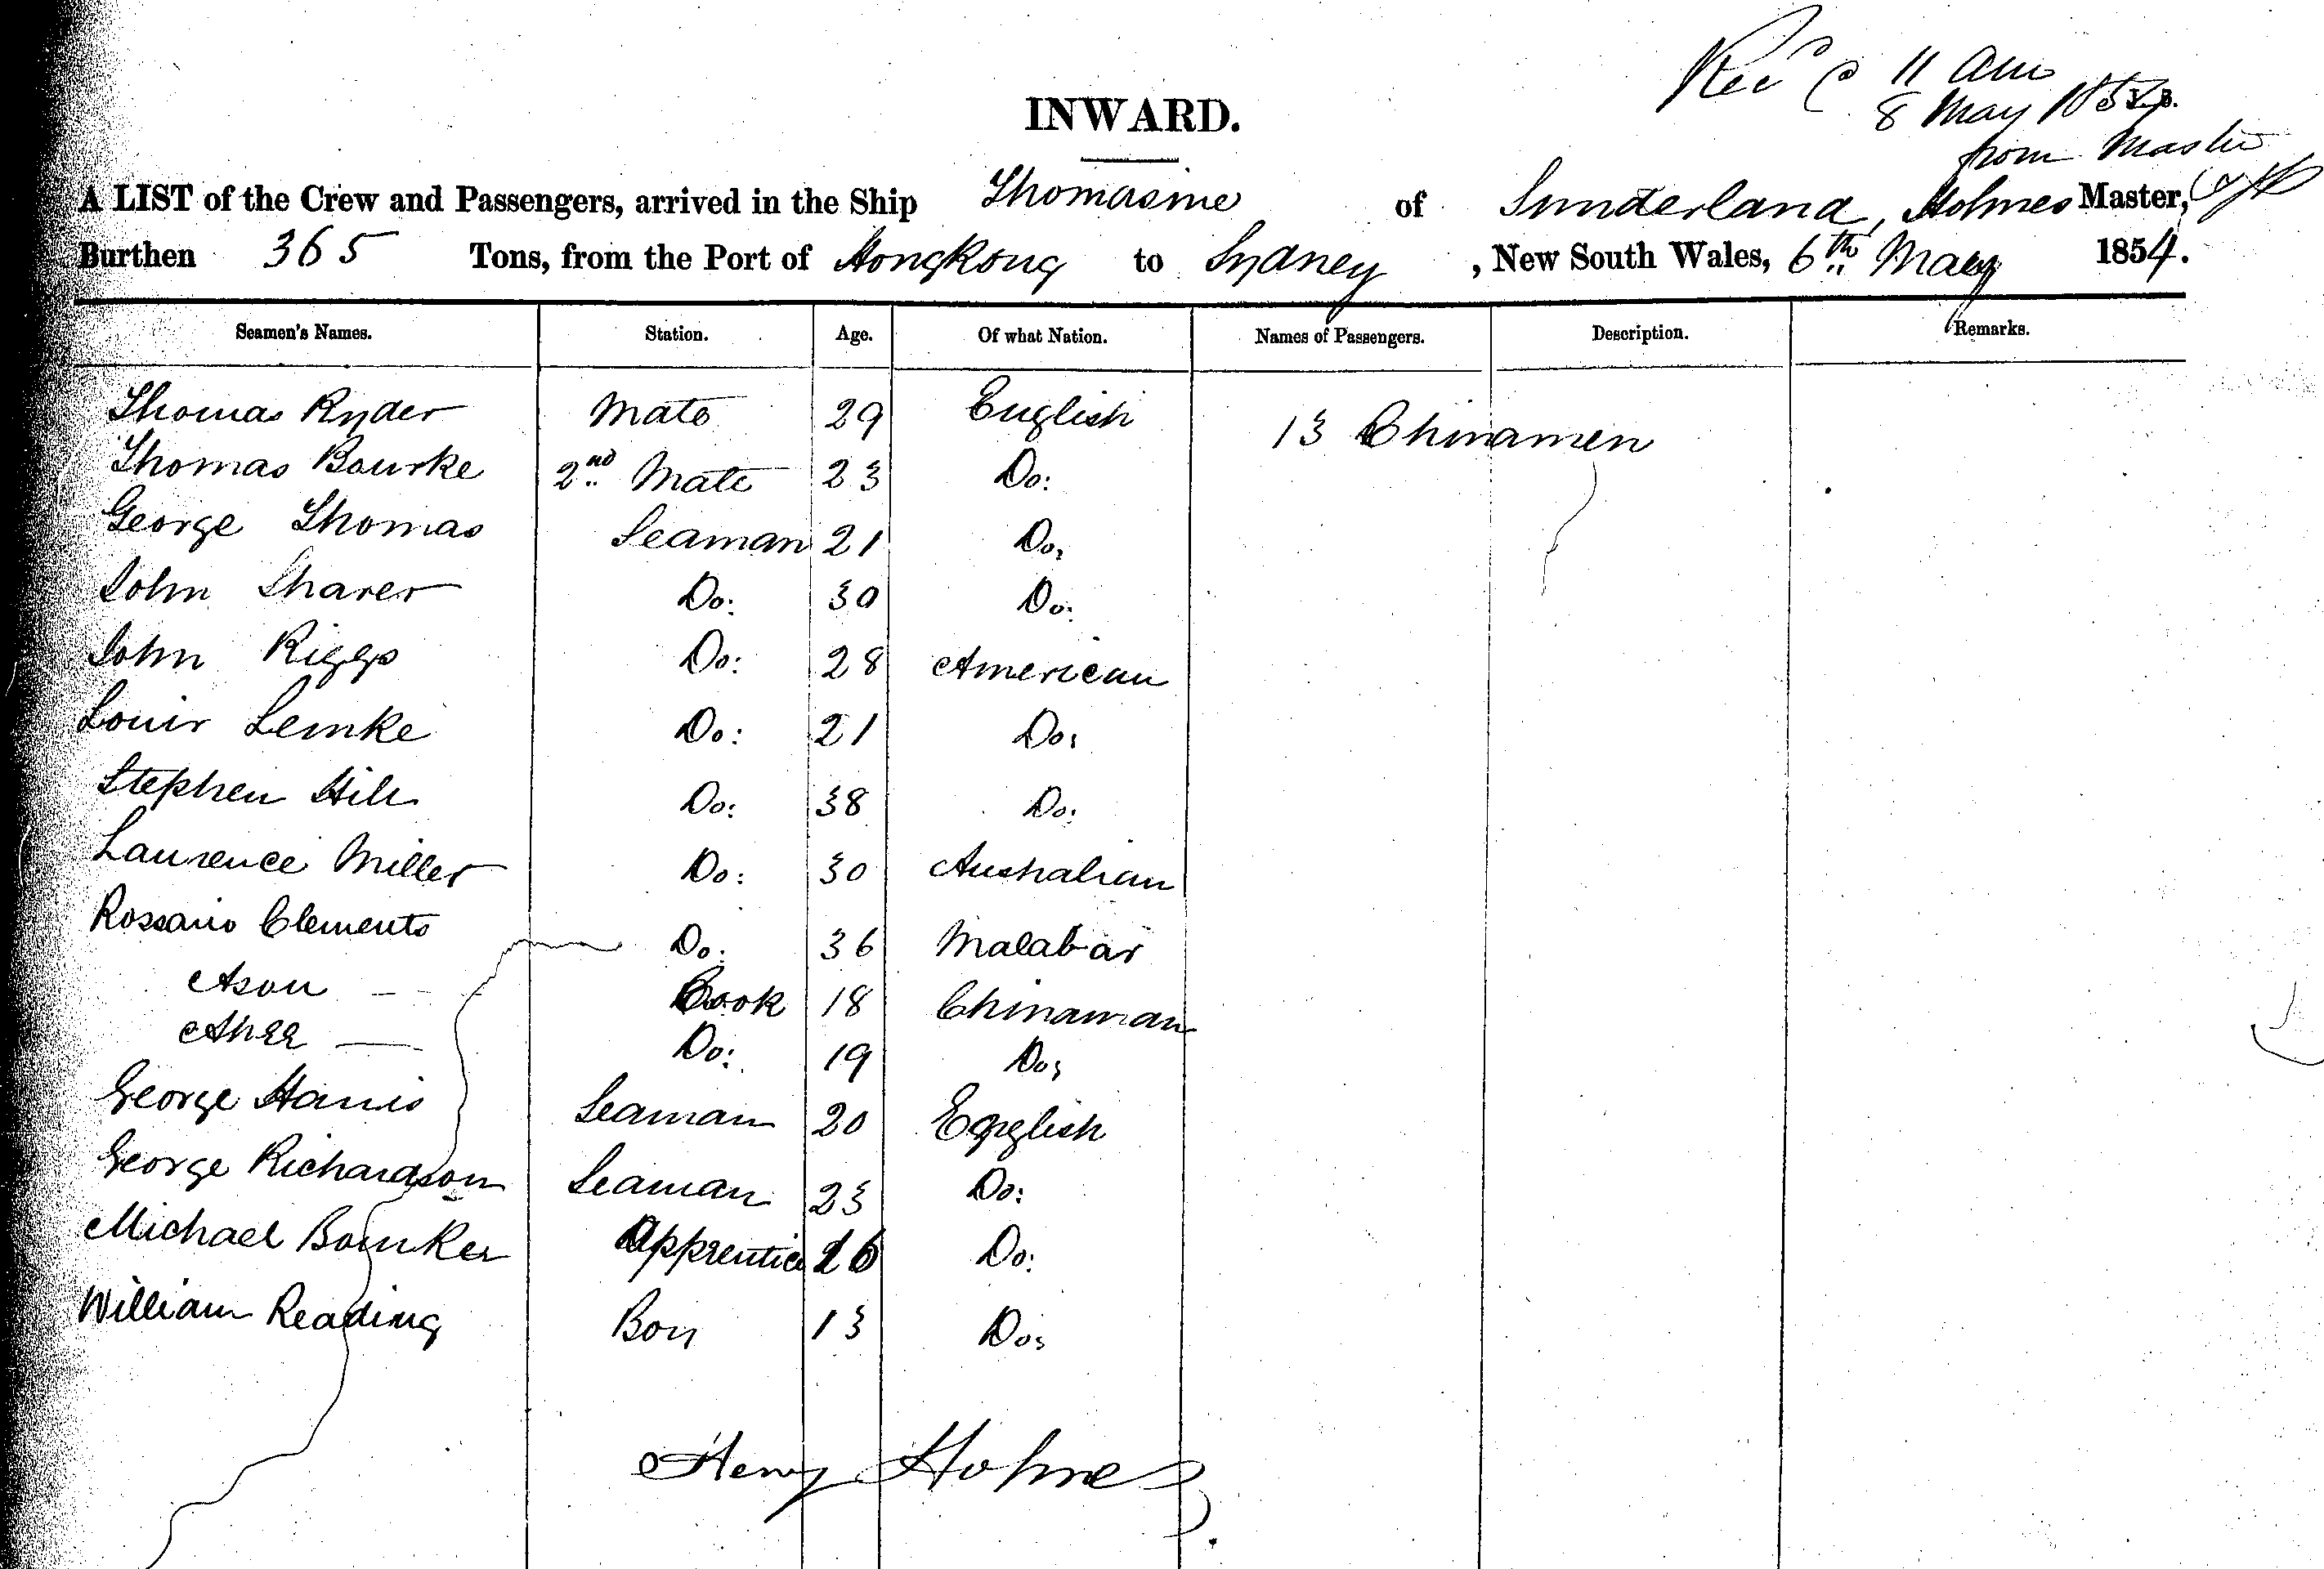 Recd @ 11 am
8 May 1854
from Master
INWARD.
A LIST of the Crew and Passengers, arrived in the Ship Thomasine of Sunderland, Holmes Master,
Burthen 365 Tons, from the Port of Hongkong to Sydney, New South Wales, 6th May 1854.
Seamen's Names. Station. Age. Of what Nation. Names of Passengers. Description. Remarks.
Thomas Ryder Mate 29 English 13 Chinamen
Thomas Bourke 2nd Mate 23 Do:
George Thomas Seaman 21 Do:
John Sharer Do: 30 Do:
John Riggs Do: 28 American
Louis Lemke Do: 21 Do:
Stephen Hill Do: 38 Do:
Laurence Miller Do: 30 Australian
Rossario Clements Do: 36 Malabar
Asou Cook 18 Chinaman
Ahee Do: 19 Do:
George Harris Seaman 20 English
George Richardson Seaman 23 Do:
Michael Apprentice 16 Do:
William Reading Boy 13 Do:
Henry Holmes